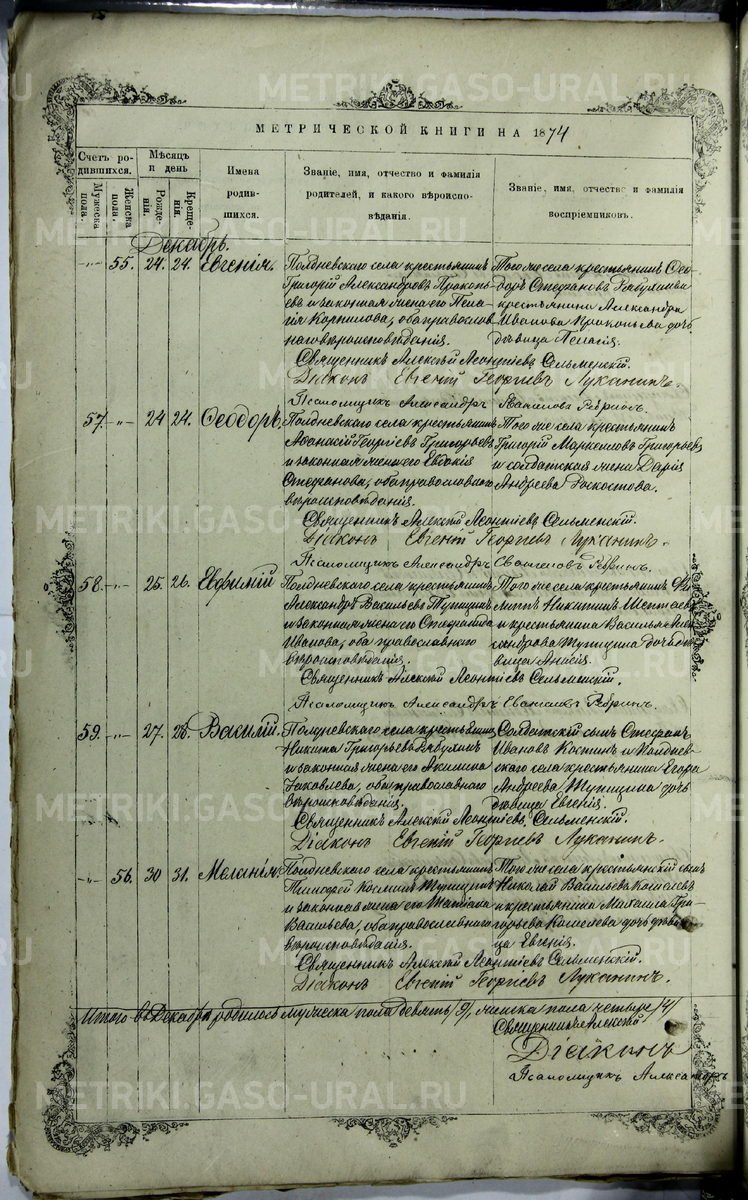 МЕТРИЧЕСКОЙ КНИГИ НА 1874
Счетъ родившихся.
Мужеска пола.
Женска пола.
Мѣсяцъ и день
Рожденія.
Крещенія.
Имена родившихся.
Званіе, имя, отчество и фамилія родителей, и какого вѣроисповѣданія.
Званіе, имя, отчество и фамилія воспріемниковъ.
Декабрь.
-„- 55. 24. 24. Евгенія.
Полдневскаго села крестьянинъ
Григорій Александровъ Прокопьевъ и законная жена его Пелагія Корнилова, оба православнаго вѣроисповѣданія.
Того же села крестьянинъ Ѳеодоръ Стефановъ и крестьянина Александра
Иванова Прокопьева дочь дѣвица Пелагія.
Священникъ Алексій Леонтіевъ Сельменскій.
Діаконъ Евгеній Георгіевъ Луканинъ.
Псаломщикъ Александръ
57. -„- 24 24. Ѳеодоръ.
Полдневскаго села крестьянинъ
Аѳанасій Георгіевъ Григорьевъ
и законная жена его Евдокія
Стефанова, оба православнаго
вѣроисповѣданія.
Того же села крестьянинъ
Григорій Маркелловъ Григорьевъ
и солдатская жена Дарія
Андреева
Священникъ Алексій Леонтіевъ Сельменскій.
Діаконъ Евгеній Георгіевъ Луканинъ.
Псаломщикъ Александръ
58. -„- 25. 26. Евфимій
Полдневскаго села крестьянинъ
Александръ Васильевъ Тупицинъ
и законная жена его Стефанида
Иванова, оба православнаго
вѣроисповѣданія.
Того же села крестьянинъ Филиппъ Никитинъ
и крестьянина Василья Александрова Тупицина дочь дѣвица Анисія.
Священникъ Алексій Леонтіевъ Сельменскій.
Псаломщикъ Александръ
59. -„- 27. 28. Василій.
Полдневскаго села крестьянинъ
Никита Григорьевъ
и законная жена его Акилина
Яковлева, оба православнаго
вѣроисповѣданія.
Солдатскій сынъ Стефанъ
Ивановъ Костинъ и Полдневскаго села крестьянина Егора
Андреева Тупицина дочь
дѣвица Евгенія.
Священникъ Алексій Леонтіевъ Сельменскій.
Діаконъ Евгеній Георгіевъ Луканинъ.
-„- 56. 30 31. Меланія.
Полдневскаго села крестьянинъ
Тимофей Косминъ Тупицинъ
и законная жена его Татіана
Васильева, оба православнаго
вѣроисповѣданія.
Того же села крестьянскій сынъ
Николай Васильевъ Кошелевъ
и крестьянина Михаила Григорьева Кошелева дочь дѣвица Евгенія.
Священникъ Алексій Леонтіевъ Сельменскій.
Діаконъ Евгеній Георгіевъ Луканинъ.
Итого въ Декабрѣ родилось мужеска пола девять /9/, женска пола четыре /4/
Священникъ Алексій
Діаконъ
Псаломщикъ Александръ
METRIKI.GASO-URAL.RU